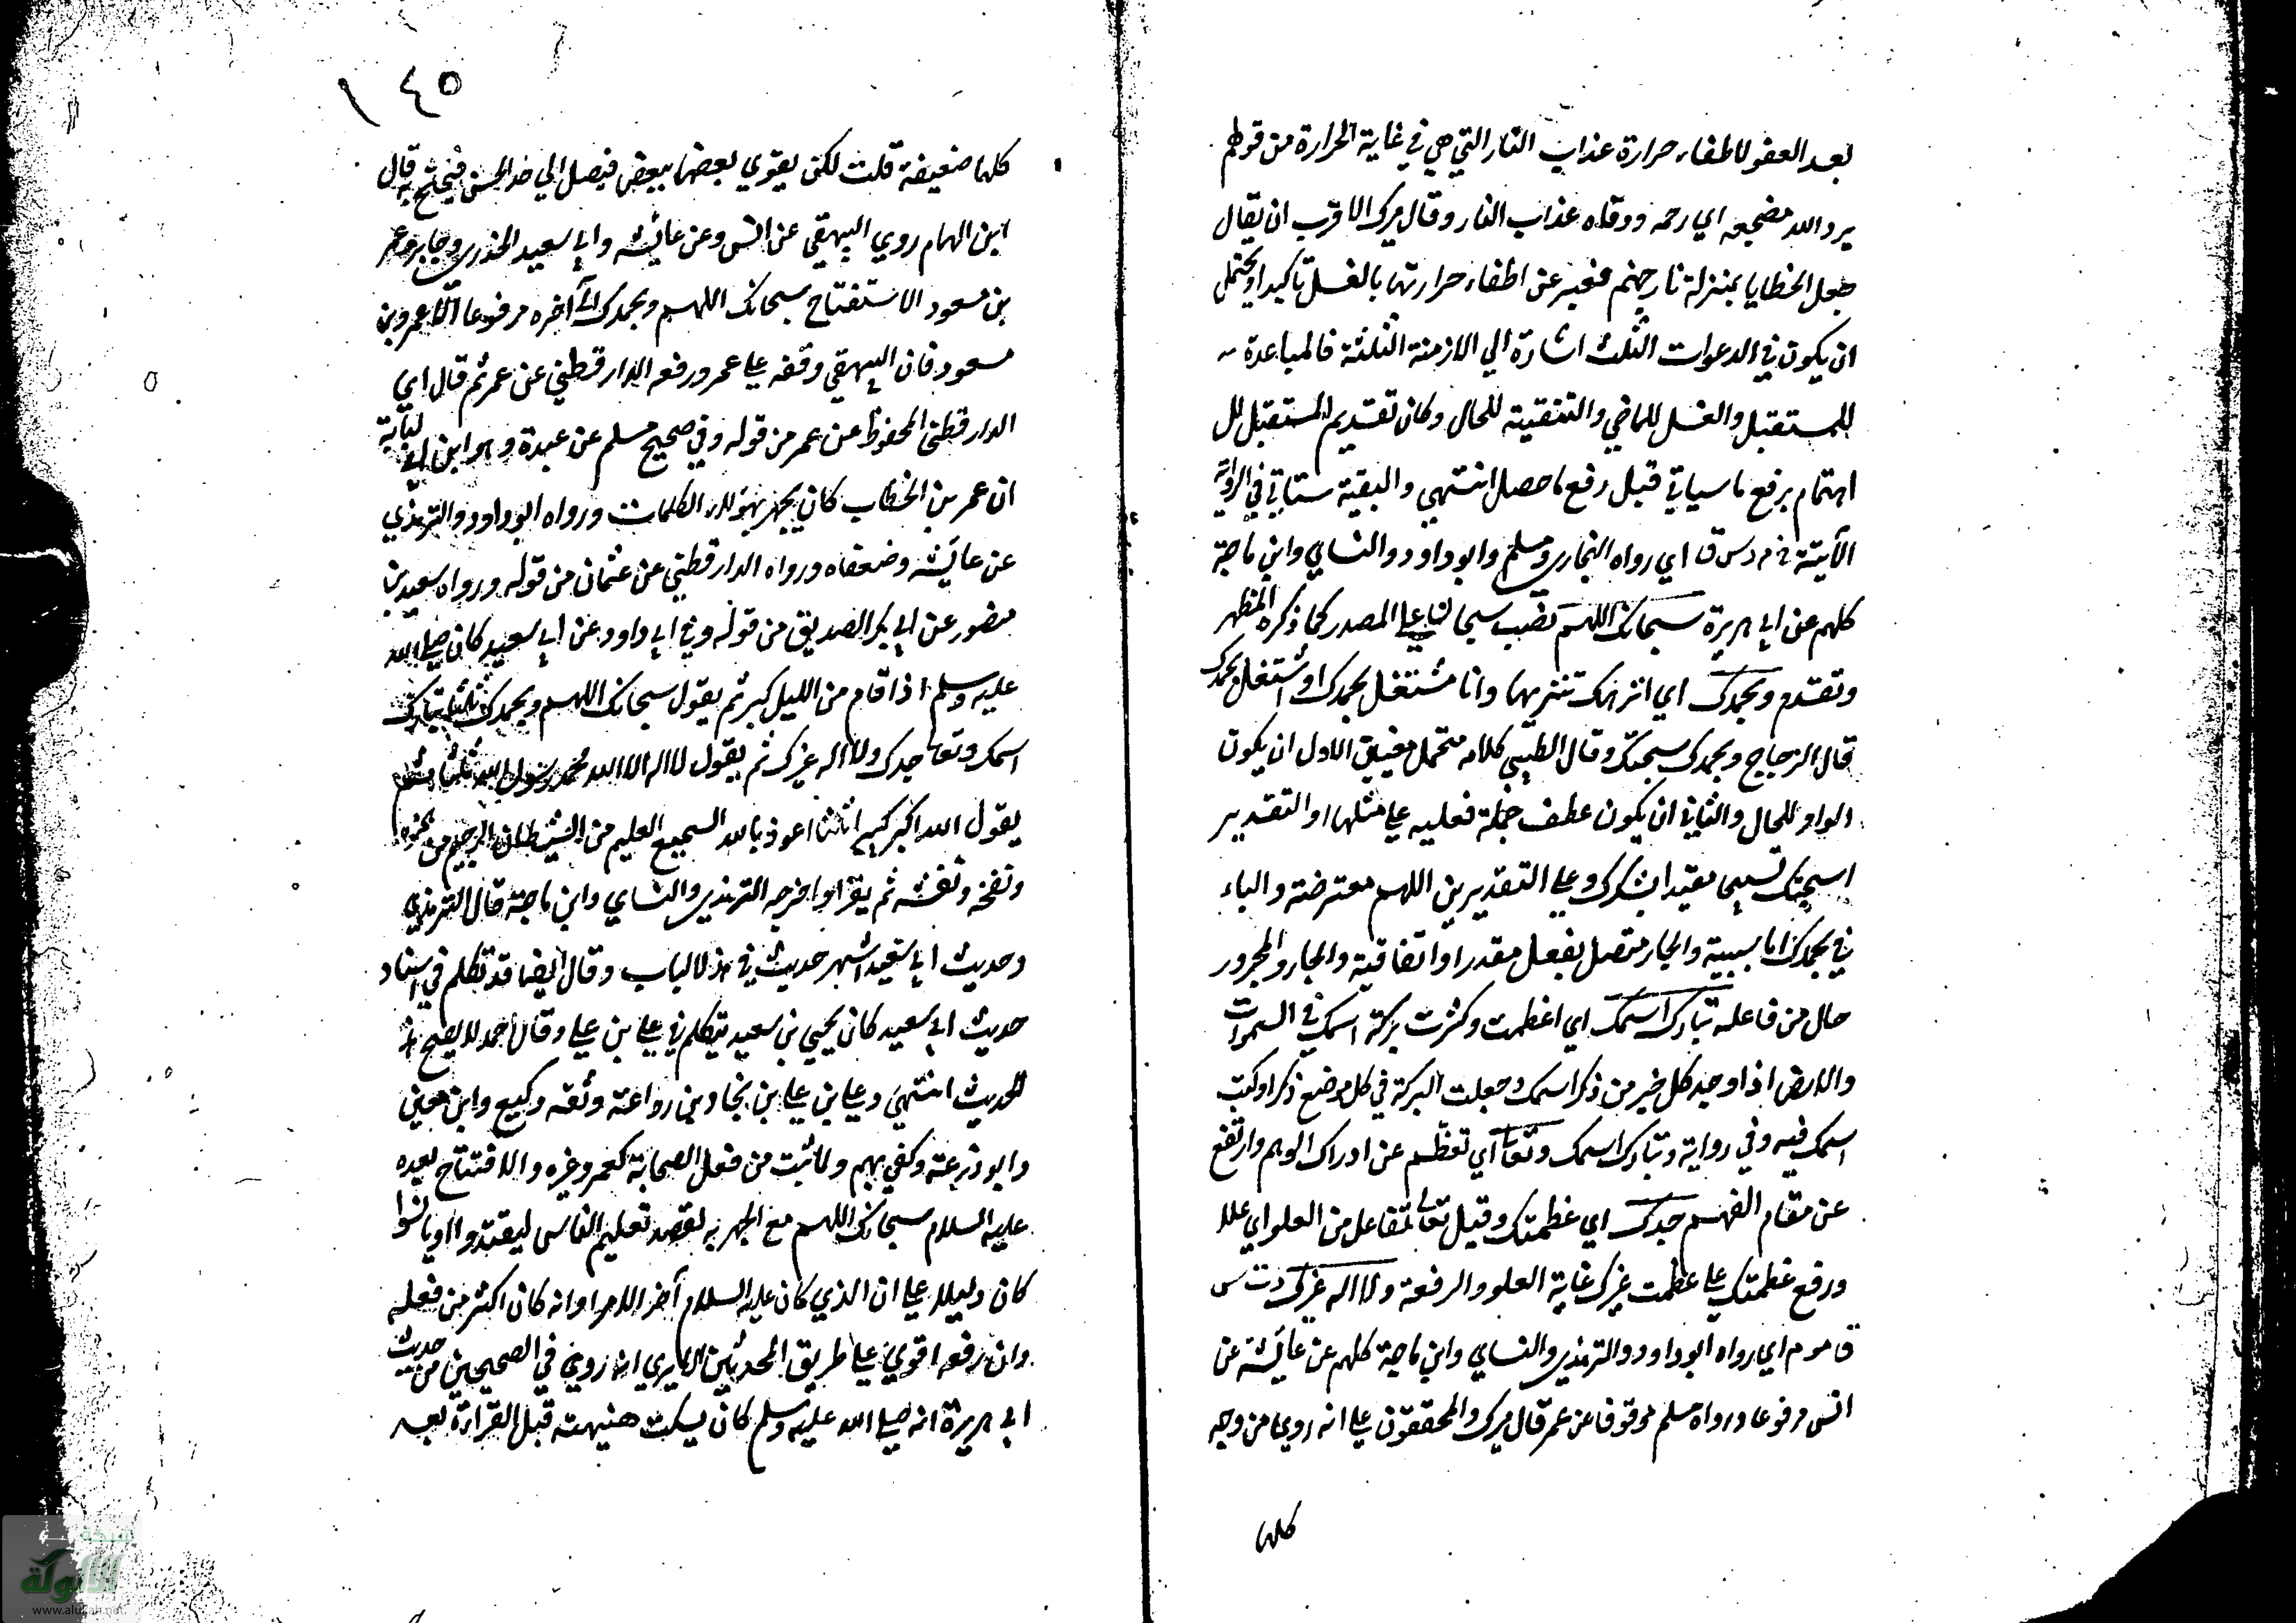 بعد العفو لاطفاء حرارة عذاب النار التي هي في غاية الحرارة من قولهم
برد الله مضجعه اي رحمه ووقاه عذاب النار وقال ميرك الاقرب ان يقال
جعل الخطايا بمنزلة نار جهنم فعبر عن اطفاء حرارتها بالغسل تأكيدا ويحتمل
ان يكون في الدعوات الثلث اشارة الي الازمنة الثلثة فالمباعدة
للمستقبل والغسل للماضي والتنقية للحال وكان تقديم المستقبل لل
اهتمام برفع ما سيأتي قبل رفع ما حصل انتهي والبقية ستاتي في الرواية
الآتية خ م د س ق اي رواه البخاري ومسلم وابو داود والنسائي وابن ماجة
كلهم عن ابي هريرة سبحانك اللهم نصب سبحانا علي المصدر كما ذكره المظهر
وتقدم وبحمدك اي انزهك تنزيها وانا مشتغل بحمدك او اشتغل بحمدك
قال الزجاج وبحمدك سبحتك وقال الطيبي كلامه محتمل معنيين الاول ان يكون
الواو للحال والثاني ان يكون عطف جملة فعليه علي مثلها او التقدير
اسبحك تسبيحا مقيدا بشكرك وعلي التقديرين اللهم معترضة والباء
في بحمدك اما سببية والجار متصل بفعل مقدر او اتفاقية والجار والمجرور
حال من فاعله تبارك اسمك اي اعظمت وكثرت بركة اسمك في السموات
والارض اذا وجد كل خير من ذكر اسمك وجعلت البركة في كل موضع ذكر او كتب
اسمك فيه وفي رواية وتبارك اسمك وتعالي اي تعظم عن ادراك الوهم وارتفع
عن مقام الفهم جدك اي عظمتك وقيل تعالي تفاعل من العلو اي علا
ورفع عظمتك علي عظمت غيرك غاية العلو والرفعة ولا اله غيرك د ت س
ق مو م اي رواه ابو داود والترمذي والنسائي وابن ماجة كلهم عن عائشة عن
انس مرفوعا ورواه مسلم موقوفا عن عمر قال ميرك والمحققون علي انه روي من وجه
كلها
١٤٥
كلها ضعيفة قلت لكن يقوي بعضها ببعض فيصل الي حد الحسن فيحتج به قال
ابن الهام روي البيهقي عن انس وعن عائشه وابي سعيد الخدري وجابر وعمر
بن مسعود الاستفتاح سبحانك اللهم وبحمدك الي آخره مرفوعا الا عمر وبن
مسعود فان البيهقي وقفه علي عمر ورفعه الدارقطني عن عمر ثم قال اي
الدارقطني المحفوظ عن عمر من قوله وفي صحيح مسلم عن عبدة وهو ابن ابي لبابة
ان عمر بن الخطاب كان يجهر بهؤلاء الكلمات ورواه ابو داود والترمذي
عن عائشه وضعفاه ورواه الدارقطني عن عثمان من قوله ورواه سعيد بن
منصور عن ابي بكر الصديق من قوله وفي ابي داود عن ابي سعيد كان صلي الله
عليه وسلم اذا قام من الليل كبر ثم يقول سبحانك اللهم وبحمدك تبارك
اسمك وتعالي جدك ولا اله غيرك ثم يقول لا اله الا الله ثلثا ثم
يقول الله اكبر كبيرا ثلثا اعوذ بالله السميع العليم من الشيطان الرجيم من همزه
ونفخه ونفثه ثم يقرا واخرجه الترمذي والنسائي وابن ماجة قال الترمذي
وحديث ابي سعيد اشهر حديث في هذا الباب وقال ايضا قد تكلم في اسناد
حديث ابي سعيد كان يحيي بن سعيد يتكلم في علي بن علي وقال احمد لا يصح هذا
الحديث انتهي وعلي بن علي بن نجاد بن رواعة وثقه وكيع وابن معين
وابو زرعة وكفي بهم ولما ثبت من فعل الصحابة كعمر وغيره والافتتاح بعده
عليه السلام سبحانك اللهم مع الجهر به لقصد تعليم الناس ليقتدوا
كان دليلا علي ان الذي كان عليه السلام آخر الامر او انه كان اكثر من فعله
وان رفعه اقوي علي طريق المحدثين الا يري انه روي في الصحيحين من حديث
ابي هريرة انه صلي الله عليه وسلم كان يسكت هنيهة قبل القراءة بعد
شبكة
الألوكة
www.alukah.net